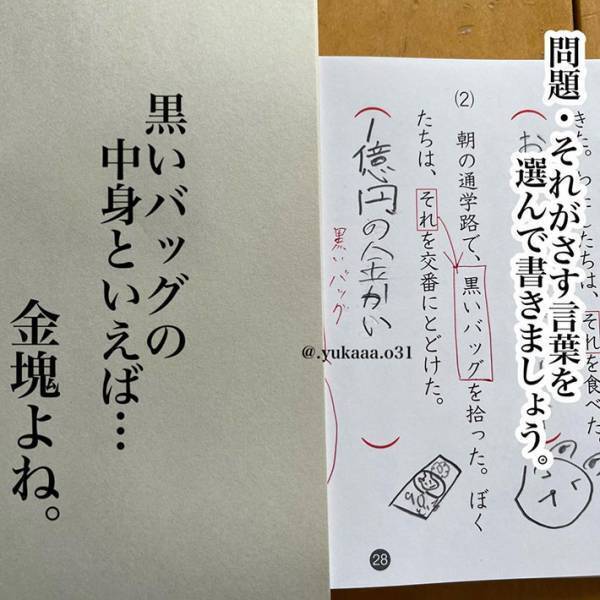 問題・それがさす言葉を
選んで書きましょう。
きた。
たちは、それを食べた
お
(2) 朝の通学路で、黒いバッグを拾った。ぼく
たちは、それを交番にとどけた。
(1億円の金かい)
黒いバッグ
28
@.yukaaa.o31
黒いバッグの
中身といえば…
金塊よね。